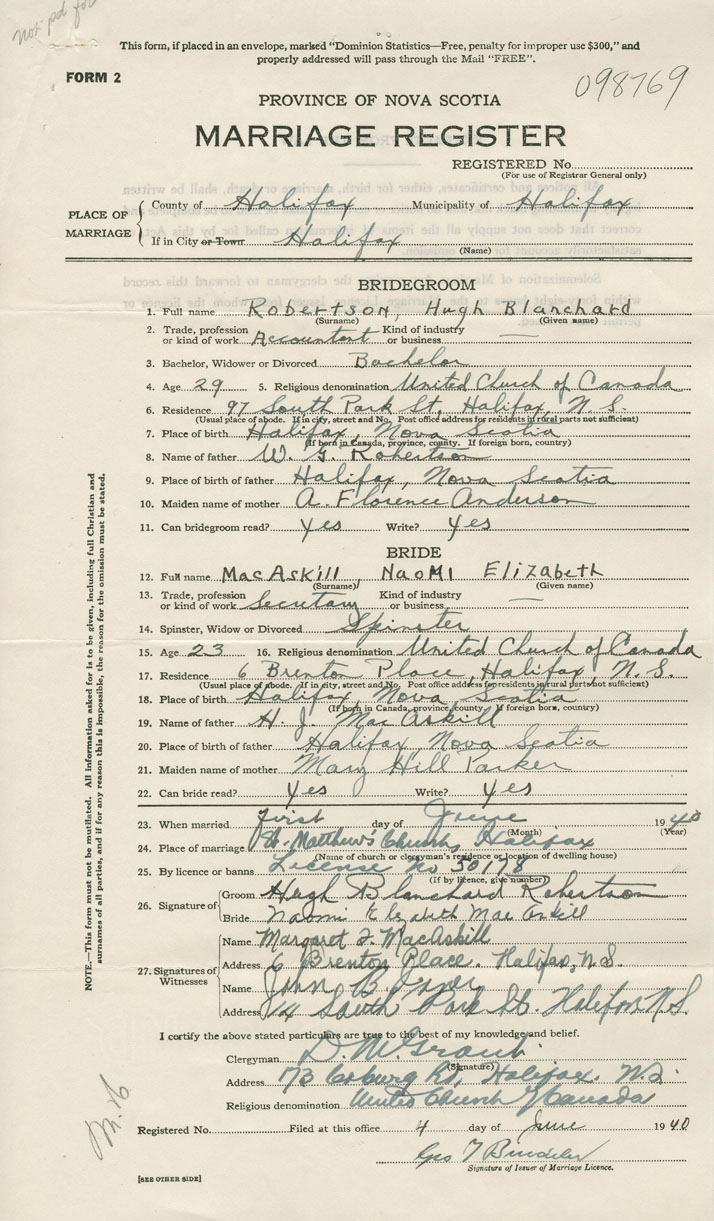 Not pd for
This form, if placed in an envelope, marked "Dominion Statistics—Free, penalty for improper use $300," and
properly addressed will pass through the Mail "FREE".
FORM 2
098769
PROVINCE OF NOVA SCOTIA
MARRIAGE REGISTER
REGISTERED No.
(For use of Registrar General only)
PLACE OF MARRIAGE
County of Halifax Municipality of Halifax
If in City or Town Halifax
(Name)
BRIDEGROOM
1. Full name Robertson, Hugh Blanchard
(Surname) (Given name)
2. Trade, profession or kind of work Accountant Kind of industry or business —
3. Bachelor, Widower or Divorced Bachelor
4. Age 29 5. Religious denomination United Church of Canada
6. Residence 97 South Park St, Halifax, N. S.
(Usual place of abode. If in city, street and No. Post office address for residents in rural parts not sufficient)
7. Place of birth Halifax, Nova Scotia
(If born in Canada, province, county. If foreign born, country)
8. Name of father W. G. Robertson
9. Place of birth of father Halifax, Nova Scotia
10. Maiden name of mother A. Florence Anderson
11. Can bridegroom read? Yes Write? Yes
BRIDE
12. Full name MacAskill, Naomi Elizabeth
(Surname) (Given name)
13. Trade, profession or kind of work Secretary Kind of industry or business —
14. Spinster, Widow or Divorced Spinster
15. Age 23 16. Religious denomination United Church of Canada
17. Residence 6 Brenton Place, Halifax, N. S.
(Usual place of abode. If in city, street and No. Post office address for residents in rural parts not sufficient)
18. Place of birth Halifax, Nova Scotia
(If born in Canada, province, county. If foreign born, country)
19. Name of father H. J. MacAskill
20. Place of birth of father Halifax, Nova Scotia
21. Maiden name of mother Mary Hill Parker
22. Can bride read? Yes Write? Yes
23. When married First day of June 1940
(Month) (Year)
24. Place of marriage St. Matthew's Church, Halifax
(Name of church or clergyman's residence or location of dwelling house)
25. By licence or banns License No 50178
(If by licence, give number)
26. Signature of
Groom Hugh Blanchard Robertson
Bride Naomi Elizabeth MacAskill
27. Signatures of Witnesses
Name Margaret F. MacAskill
Address 6 Brenton Place. Halifax, N.S.
Name John B.
Address 14 South Park St. Halifax N.S.
I certify the above stated particulars are true to the best of my knowledge and belief.
Clergyman D. M. Grant
(Signature)
Address 73 Coburg Rd, Halifax. N.S.
Religious denomination United Church of Canada
Registered No. Filed at this office 4 day of June 1940
Geo
Signature of Issuer of Marriage Licence.
[SEE OTHER SIDE]
NOTE.—This form must not be mutilated. All information asked for is to be given, including full Christian and
surnames of all parties, and if for any reason this is impossible, the reason for the omission must be stated.